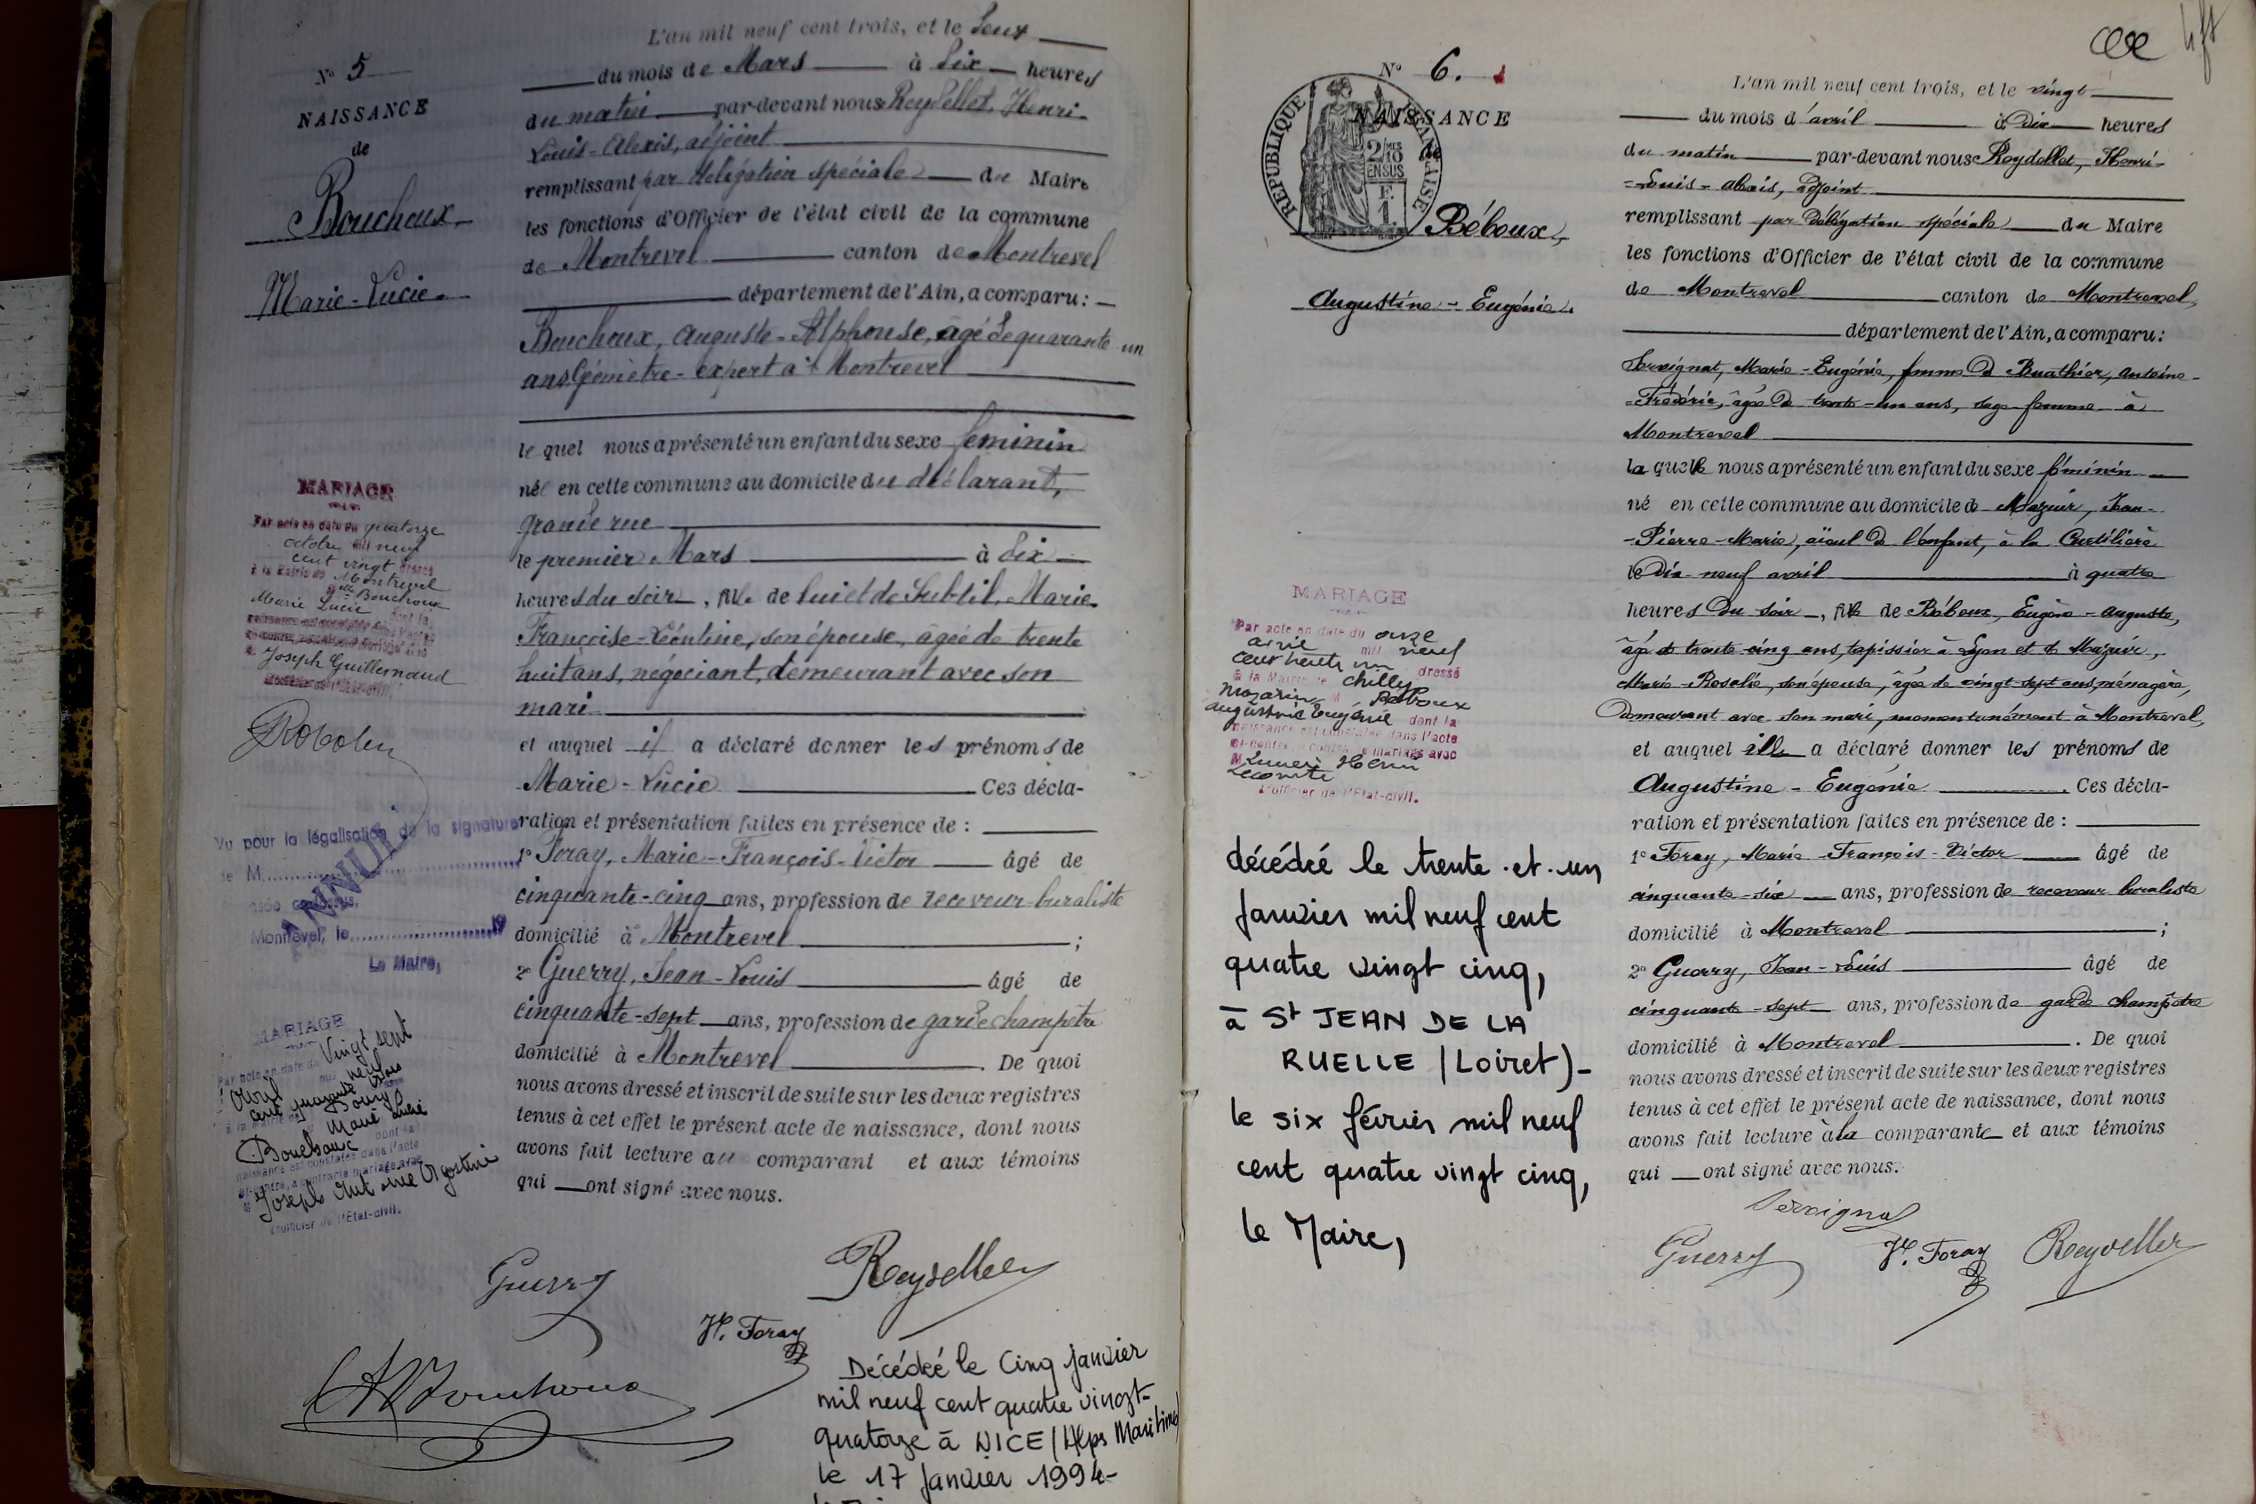 N° 5
NAISSANCE
de
Bouchoux
Marie-Lucie
MARIAGE
Par acte en date du quatorze
octobre mil neuf
cent vingt dressé
à la Mairie de Montrevel
Mlle Bouchoux
Marie Lucie dont la
Joseph Guillermaud
Vu pour la légalisation de la signature
de M
ANNULÉ
Montrevel, le 19
Le Maire,
MARIAGE
Par acte en date du vingt sept
avril mil neuf
cent quarante trois
à la Mairie de Bourg
Marie Lucie
Bouchoux dont la
naissance est constatée dans l'acte
ci-contre, a contracté mariage avec
M Joseph Antoine Agostini
L'officier de l'Etat-civil.
L'an mil neuf cent trois, et le deux
du mois de Mars à dix heures
du matin par-devant nous Reydellet, Henri-
Louis-Alexis, adjoint
remplissant par délégation spéciale du Maire
les fonctions d'Officier de l'état civil de la commune
de Montrevel canton de Montrevel
département de l'Ain, a comparu :
Bouchoux, Auguste-Alphonse, âgé de quarante-un
ans Géomètre-expert à Montrevel
le quel nous a présenté un enfant du sexe féminin
née en cette commune au domicile du déclarant,
grande rue
le premier Mars à dix
heures du soir, fille de lui et de Subtil, Marie-
Françoise-Léontine, son épouse, âgée de trente
huit ans, négociant, demeurant avec son
mari
et auquel il a déclaré donner les prénoms de
Marie-Lucie Ces décla-
ration et présentation faites en présence de :
1° Foray, Marie-François-Victor âgé de
cinquante-cinq ans, profession de receveur-buraliste
domicilié à Montrevel ;
2° Guerry, Jean-Louis âgé de
cinquante-sept ans, profession de garde champêtre
domicilié à Montrevel . De quoi
nous avons dressé et inscrit de suite sur les deux registres
tenus à cet effet le présent acte de naissance, dont nous
avons fait lecture au comparant et aux témoins
qui ont signé avec nous.
Guerry
Reydellet
V. Foray
A Bouchoux
Décédée le Cinq janvier
mil neuf cent quatre vingt-
quatorze à NICE (Alpes Maritimes)
le 17 Janvier 1994-
N° 6.
NAISSANCE
de
REPUBLIQUE FRANÇAISE
2/10 EN SUS
Béboux,
Augustine-Eugénie.
MARIAGE
Par acte en date du onze
avril mil neuf
cent trente un dressé
à la Mairie de Chilly
Mazarin M Béboux
Augustine Eugénie dont la
naissance est constatée dans l'acte
ci-contre a contracté mariage avec
M Lucien Henri
Lecomte
L'officier de l'Etat-civil.
décédée le trente-et-un
Janvier mil neuf cent
quatre vingt cinq,
à St JEAN DE LA
RUELLE (Loiret)-
le six février mil neuf
cent quatre vingt cinq,
le Maire,
L'an mil neuf cent trois, et le vingt
du mois d'avril à dix heures
du matin par-devant nous Reydellet, Henri-
-Louis-Alexis, adjoint
remplissant par délégation spéciale du Maire
les fonctions d'Officier de l'état civil de la commune
de Montrevel canton de Montrevel,
département de l'Ain, a comparu :
Servignat, Marie-Eugénie, femme de Buathier, Antoine-
-Frédéric, âgée de trente-un ans, sage-femme à
Montrevel
la quelle nous a présenté un enfant du sexe féminin
né en cette commune au domicile de Mazuir, Jean-
-Pierre-Marie, aïeul de l'enfant, à la Cuetilière
le dix-neuf avril à quatre
heures du soir, fille de Béboux, Eugène-Auguste,
âgé de trente-cinq ans, tapissier à Lyon et de Mazuir,
Marie-Rosalie, son épouse, âgée de vingt-sept ans, ménagère,
demeurant avec son mari, momentanément à Montrevel,
et auquel elle a déclaré donner les prénoms de
Augustine-Eugénie . Ces décla-
ration et présentation faites en présence de :
1° Foray, Marie-François-Victor âgé de
cinquante-six ans, profession de receveur buraliste
domicilié à Montrevel ;
2° Guerry, Jean-Louis âgé de
cinquante-sept ans, profession de garde champêtre
domicilié à Montrevel . De quoi
nous avons dressé et inscrit de suite sur les deux registres
tenus à cet effet le présent acte de naissance, dont nous
avons fait lecture à la comparante et aux témoins
qui ont signé avec nous.
Servignat
Guerry V. Foray Reydellet